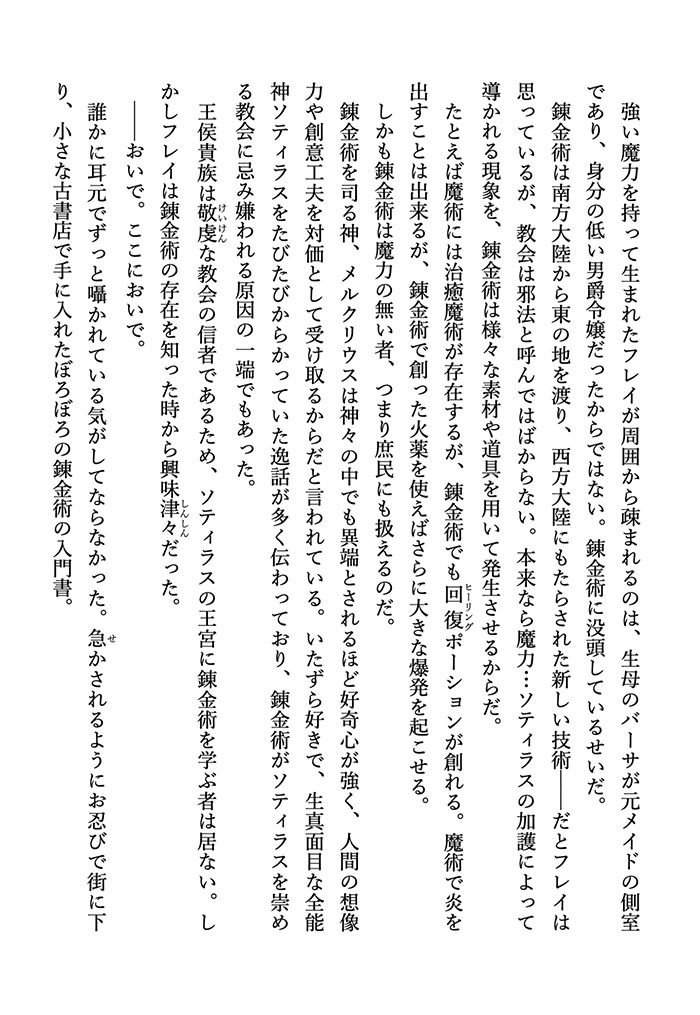 強い魔力を持って生まれたフレイが周囲から疎まれるのは、生母のバーサが元メイドの側室
であり、身分の低い男爵令嬢だったからではない。錬金術に没頭しているせいだ。
錬金術は南方大陸から東の地を渡り、西方大陸にもたらされた新しい技術――だとフレイは
思っているが、教会は邪法と呼んではばからない。本来なら魔力…ソティラスの加護によって
導かれる現象を、錬金術は様々な素材や道具を用いて発生させるからだ。
たとえば魔術には治癒魔術が存在するが、錬金術でも回復ヒーリングポーションが創れる。魔術で炎を
出すことは出来るが、錬金術で創った火薬を使えばさらに大きな爆発を起こせる。
しかも錬金術は魔力の無い者、つまり庶民にも扱えるのだ。
錬金術を司る神、メルクリウスは神々の中でも異端とされるほど好奇心が強く、人間の想像
力や創意工夫を対価として受け取るからだと言われている。いたずら好きで、生真面目な全能
神ソティラスをたびたびからかっていた逸話が多く伝わっており、錬金術がソティラスを崇め
る教会に忌み嫌われる原因の一端でもあった。
王侯貴族は敬虔けいけんな教会の信者であるため、ソティラスの王宮に錬金術を学ぶ者は居ない。し
かしフレイは錬金術の存在を知った時から興味津々しんしんだった。
――おいで。ここにおいで。
誰かに耳元でずっと囁かれている気がしてならなかった。急せかされるようにお忍びで街に下
り、小さな古書店で手に入れたぼろぼろの錬金術の入門書。